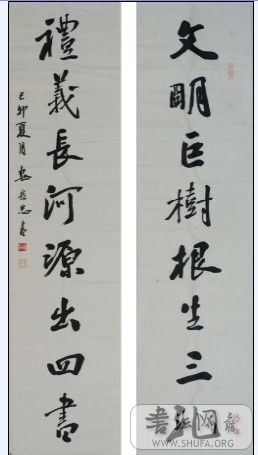 文明巨樹根生三
禮義長河源出四書
己卯夏月
WWW.SHUFA.ORG